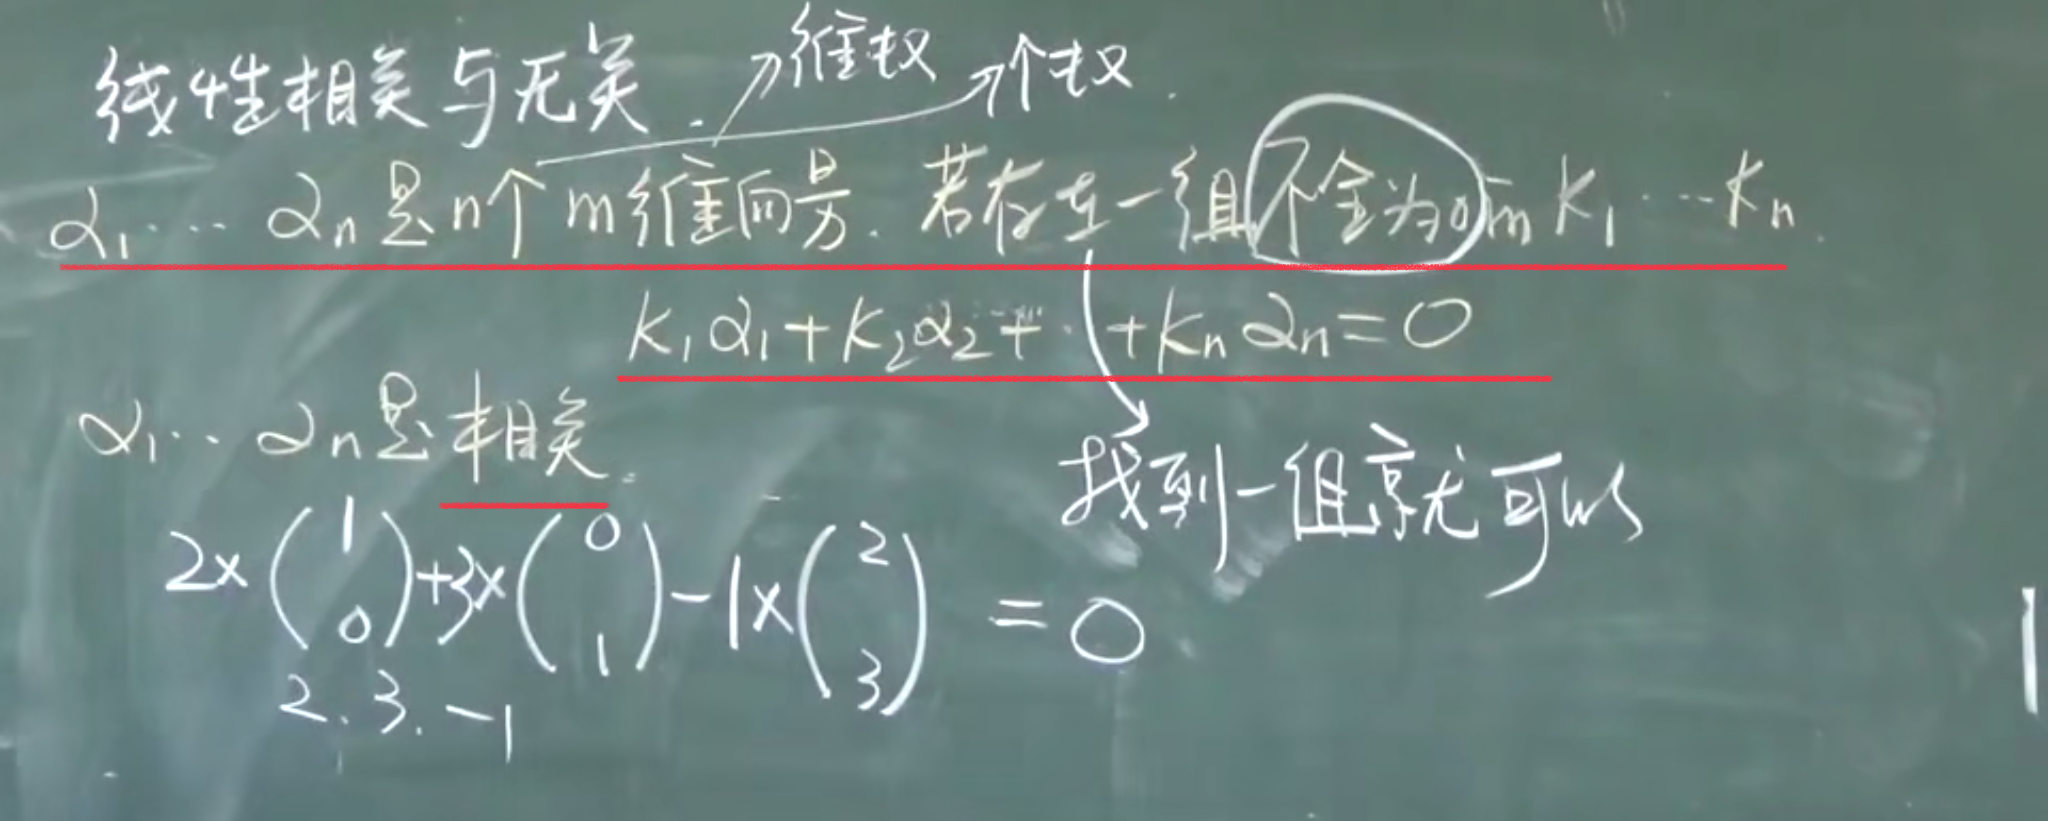 线性相关与无关. 维数 个数.
α₁ … αₙ是n个m维向量. 若存在一组不全为0的 k₁ … kₙ.
k₁α₁+k₂α₂+…+kₙαₙ=0
α₁… αₙ是相关.
找到一组就可以
2×(1 0)+3×(0 1)-1×(2 3)=0
2.3.-1